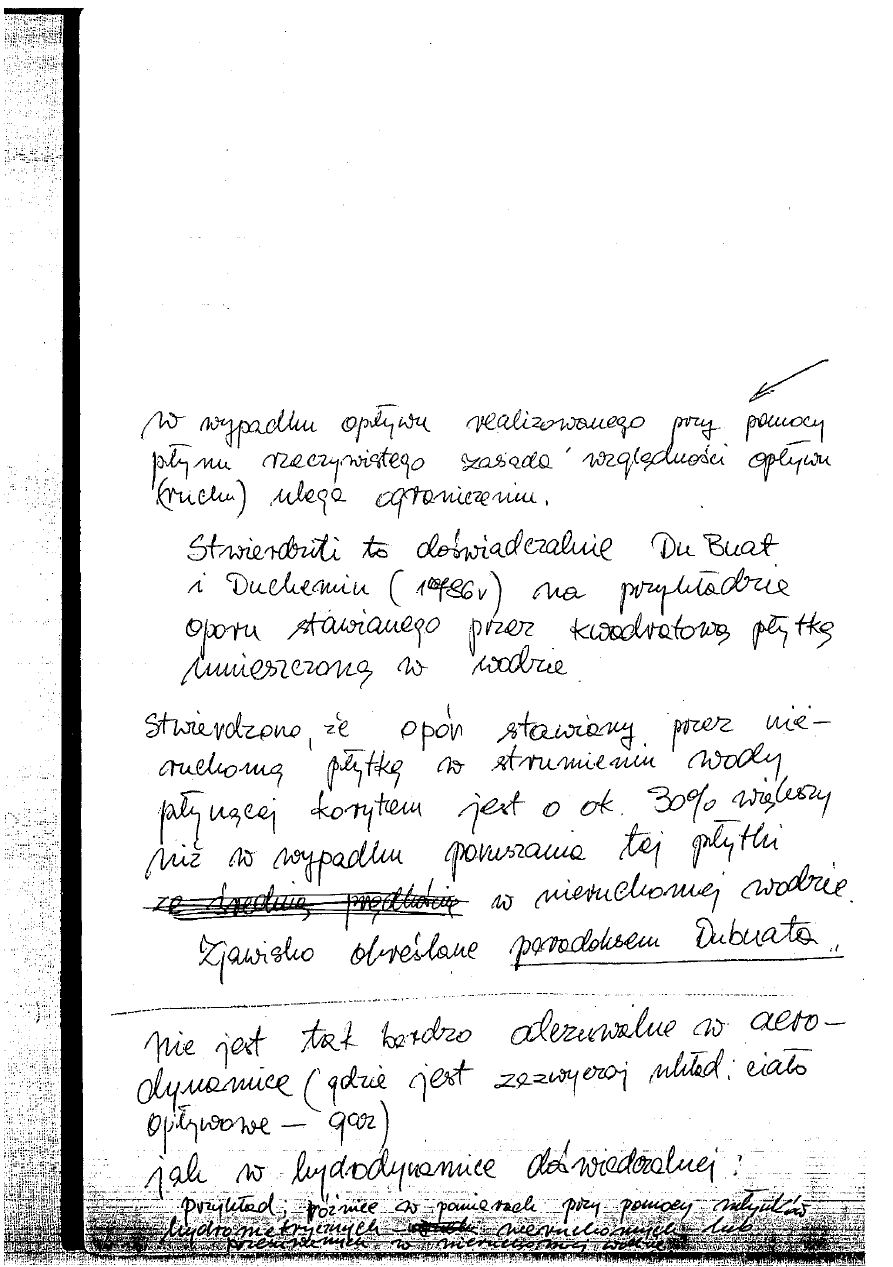 W wypadku opływu realizowanego przy pomocy
płynu rzeczywistego zasada względności opływu
(ruchu) ulega ograniczeniu.
Stwierdzili to doświadczalnie Du Buat
i Duchemin (1786r) na przykładzie
oporu stawianego przez kwadratową płytkę
umieszczoną w wodzie
Stwierdzono, że opór stawiany przez nie-
ruchomą płytkę w strumieniu wody
płynącej korytem jest o ok. 30% większy
niż w wypadku poruszania tej płytki
ze średnią prędkością w nieruchomej wodzie.
Zjawisko określane paradoksem Dubuata"
nie jest tak bardzo aktualne w aero-
dynamice (gdzie jest zazwyczaj układ: ciało
opływowe – gaz)
jak w hydrodynamice doświadczalnej:
przykład; różnice w pomiarach przy pomocy młynków
hydrometrycznych – nieruchomych lub
w nieruchomej wodzie